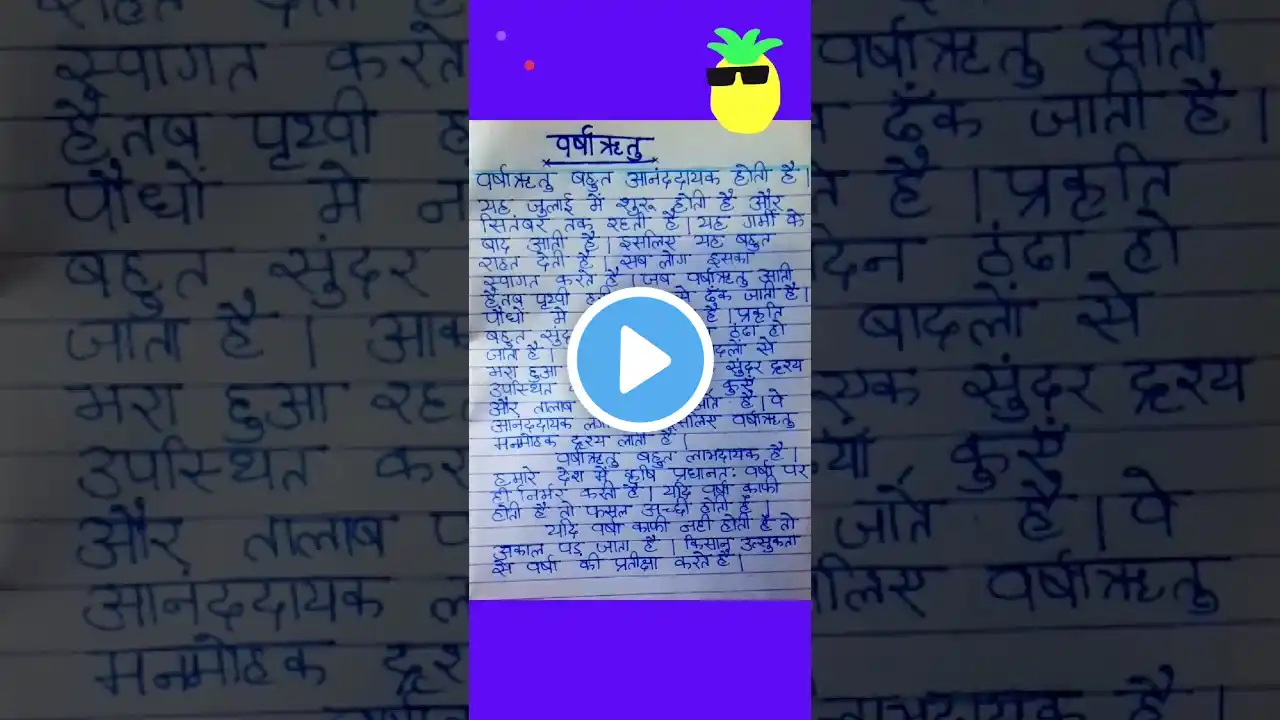 वर्षाऋतु
वर्षाऋतु बहुत आनंददायक होती है।
यह जुलाई में शुरू होती है और
सितंबर तक रहती है। यह गर्मी के
बाद आती है। इसलिए यह बहुत
राहत देती है। सब लोग इसका
स्वागत करते है। जब वर्षाऋतु आती
है तब पृथ्वी ह से ढँक जाती है।
पौधों में न है। प्रकृति
बहुत सुंदर ठंढा हो
जाता है। आक बादलों से
भरा हुआ रह एक सुंदर द्रश्य
उपस्थित कर कुएँ
और तालाब जाते है। वे
आनंददायक लग इसलिए वर्षाऋतु
मनमोहक द्रश्य लाती है।
वर्षाऋतु बहुत लाभदायक है।
हमारे देश में कृषि प्रधानत: वर्षा पर
ही निर्भर करती है। यदि वर्षा काफी
होती है तो फसल अच्छी होती है।
यदि वर्षा काफी नही होती है तो
अकाल पड़ जाता है। किसान उत्सुकता
से वर्षा की प्रतीक्षा करते है।